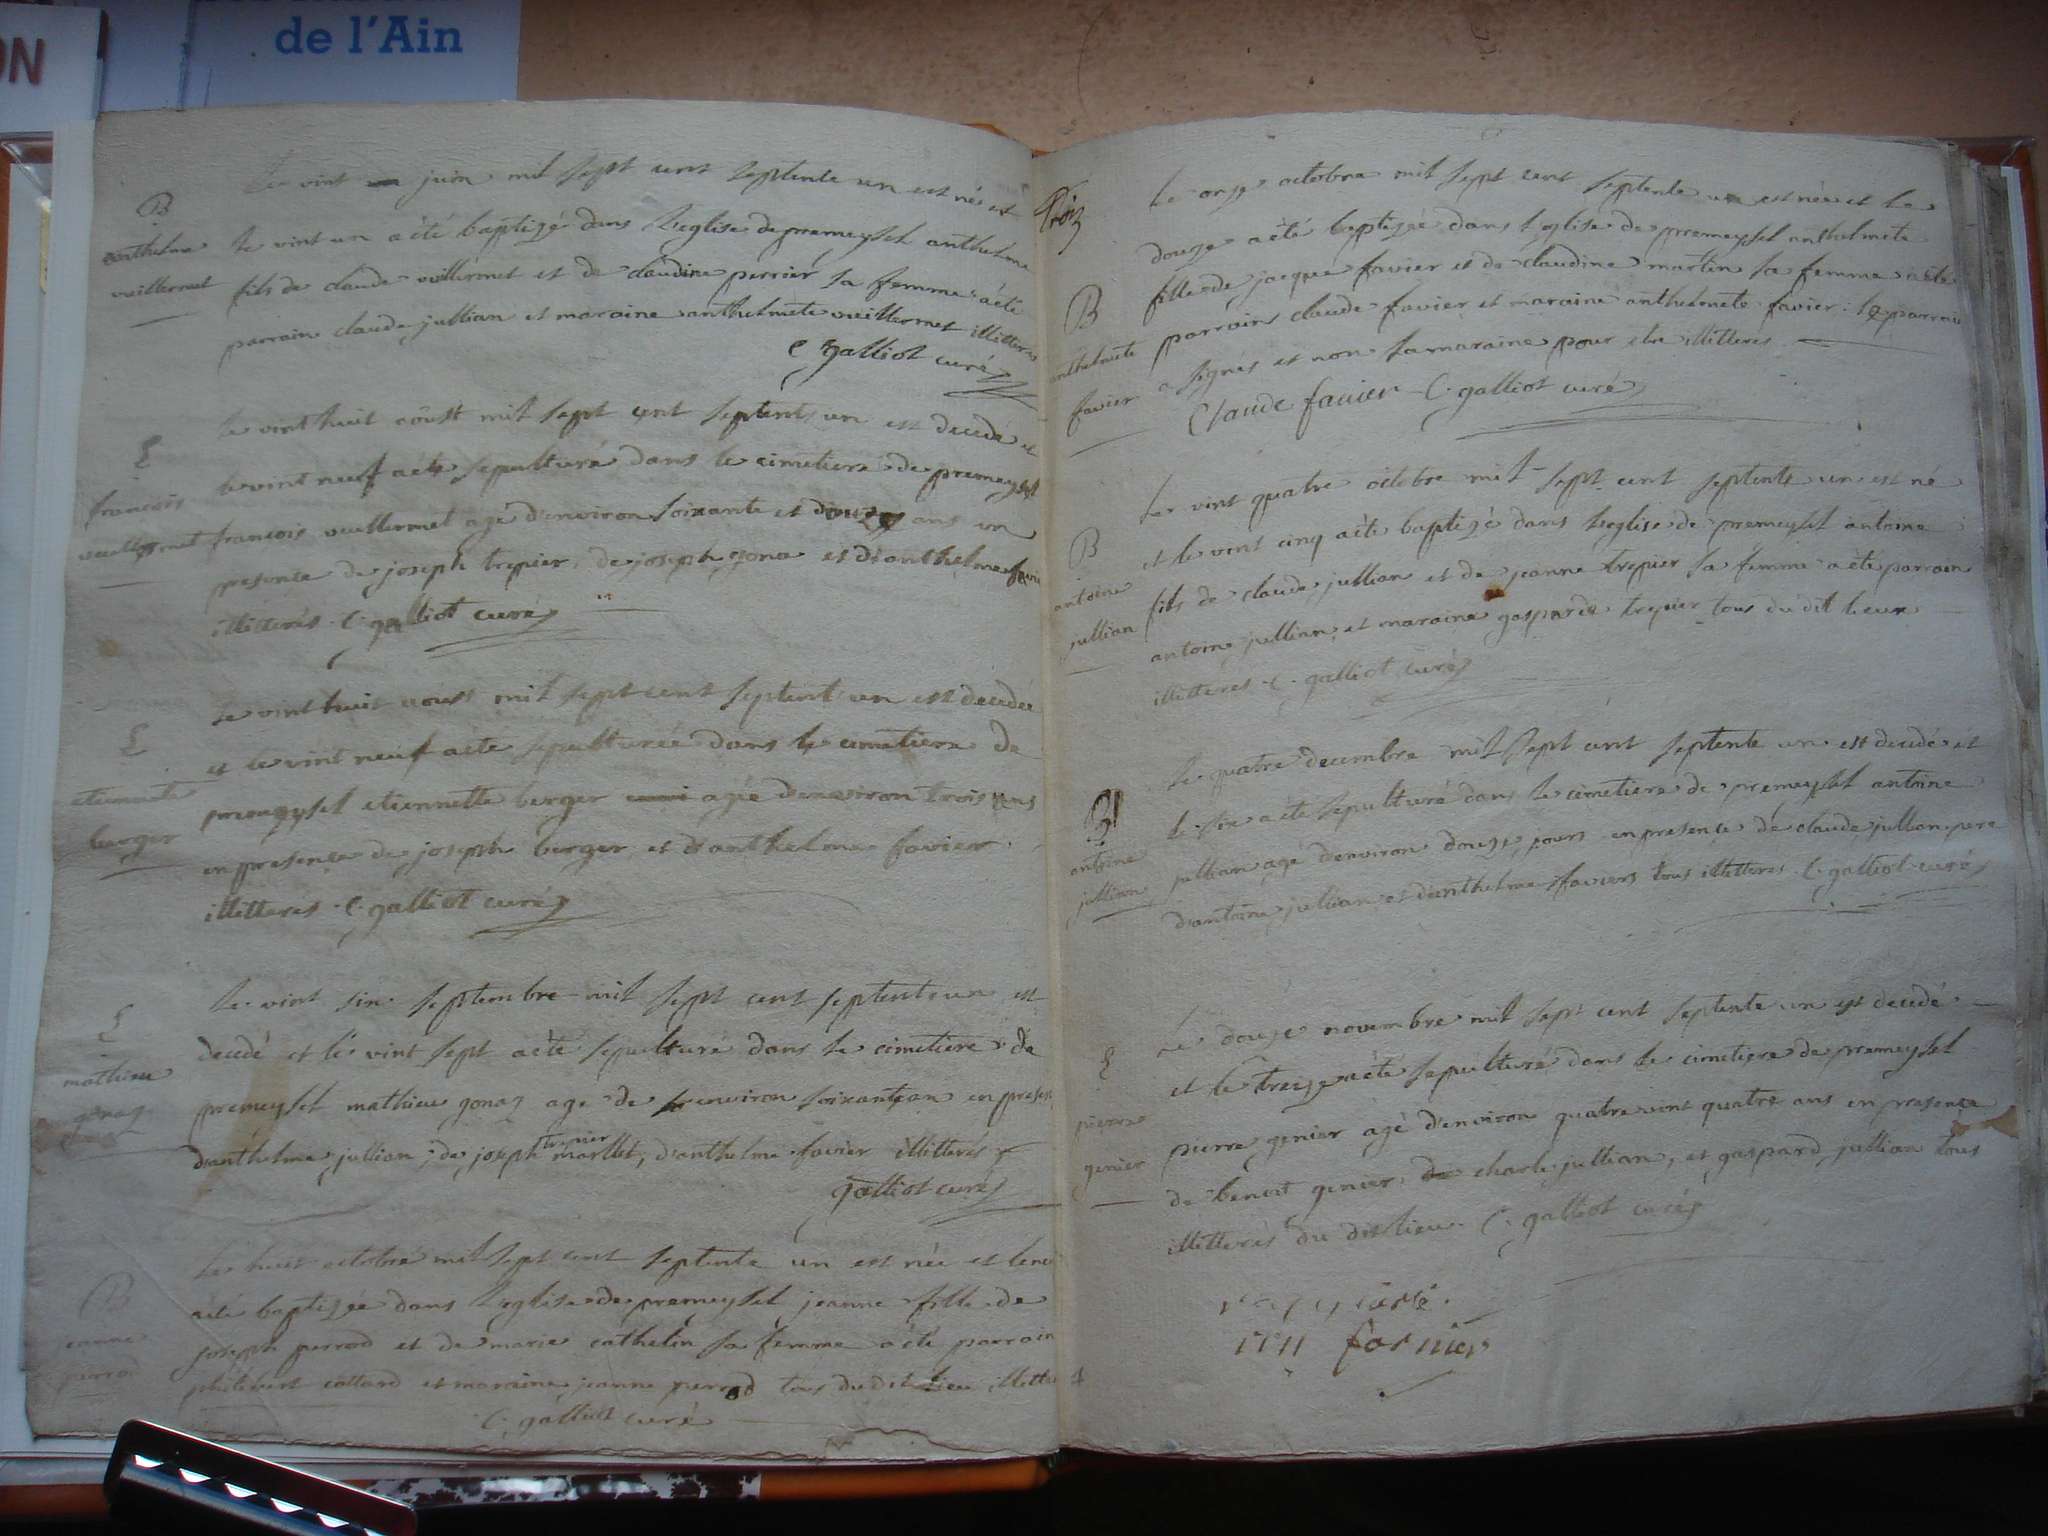 ON
de l'Ain
Le vint juin mil sept cent septente un est né et
B
anthelme
vuillermet
le vint un a été baptizé dans l'eglise de premeysel anthelme
fils de claude vuillermet et de claudine perrier sa femme a été
parrain claude jullian et maraine anthelmete vuillermet illitteres
C galliot curé
Le vint huit aoust mil sept cent septente un est decedé et
£
francois
vuillermet
le vint neuf a été sepulturé dans le cimetiere de premeysel
francois vuillermet agé d'environ soixante et douze ans en
presence de joseph trepier, de joseph gona et d'anthelme favier
illitterés C. galliot curé
Le vint huit aoust mil sept cent septent un est decedée
£
etiennete
berger
et le vint neuf a été sepulturée dans le cimetiere de
premeysel etiennette berger agée d'environ trois ans
en presence de joseph berger et d'anthelme favier
illitteres C. galliot curé
Le vint six septembre mil sept cent septente un est
£
mathieu
gonaz
decedé et le vint sept a été sepulturé dans le cimetiere de
premeysel mathieu gonaz age de environ soixante an en presen
d'anthelme jullian, de joseph trepier marllet, d'anthelme favier illitterés
galliot curé
Le huit octobre mil sept cent septente un est née et le neu
B
jeanne
perrod
a été baptizée dans l'eglise de premeysel jeanne fille de
joseph perrod et de marie cathelin sa femme a été parrain
philibert cottard et maraine jeanne perrod tous du dit lieu illitte
C. galliot curé
Troiz
Le onze octobre mil sept cent septente un est née et le
douze a été baptizée dans l'eglise de premeysel anthelmete
B
anthelmete
favier
fille de jacque favier et de claudine martin sa femme a été
parrain claude favier et maraine anthelmete favier le parrain
a signés et non la maraine pour etre illitteres
Claude favier C. galliot curé
Le vint quatre octobre mil sept cent septente un est né
B
antoine
jullian
et le vint cinq a été baptizé dans l'eglise de premeysel antoine
fils de claude jullian et de jeanne trepier sa femme a été parrain
antoine jullian et maraine gasparde trepier tous du dit lieux
illitteres C. galliot curé
Le quatre decembre mil sept cent septente un est decedé et
antoine
jullian
le six a été sepulturé dans le cimetiere de premeysel antoine
jullian agé d'environ douze jours en presence de claude jullian pere
d'antoine jullian et d'anthelme faviers tous illitteres C. galliot curé
Le douze novembre mil sept cent septente un est decedé
£
pierre
genier
et le treize a été sepulturé dans le cimetiere de premeysel
pierre genier agé d'environ quatre vint quatre ans en presence
de benoit genier, de charle jullian, et gaspard jullian tous
illitterés du dit lieu C. galliot curé